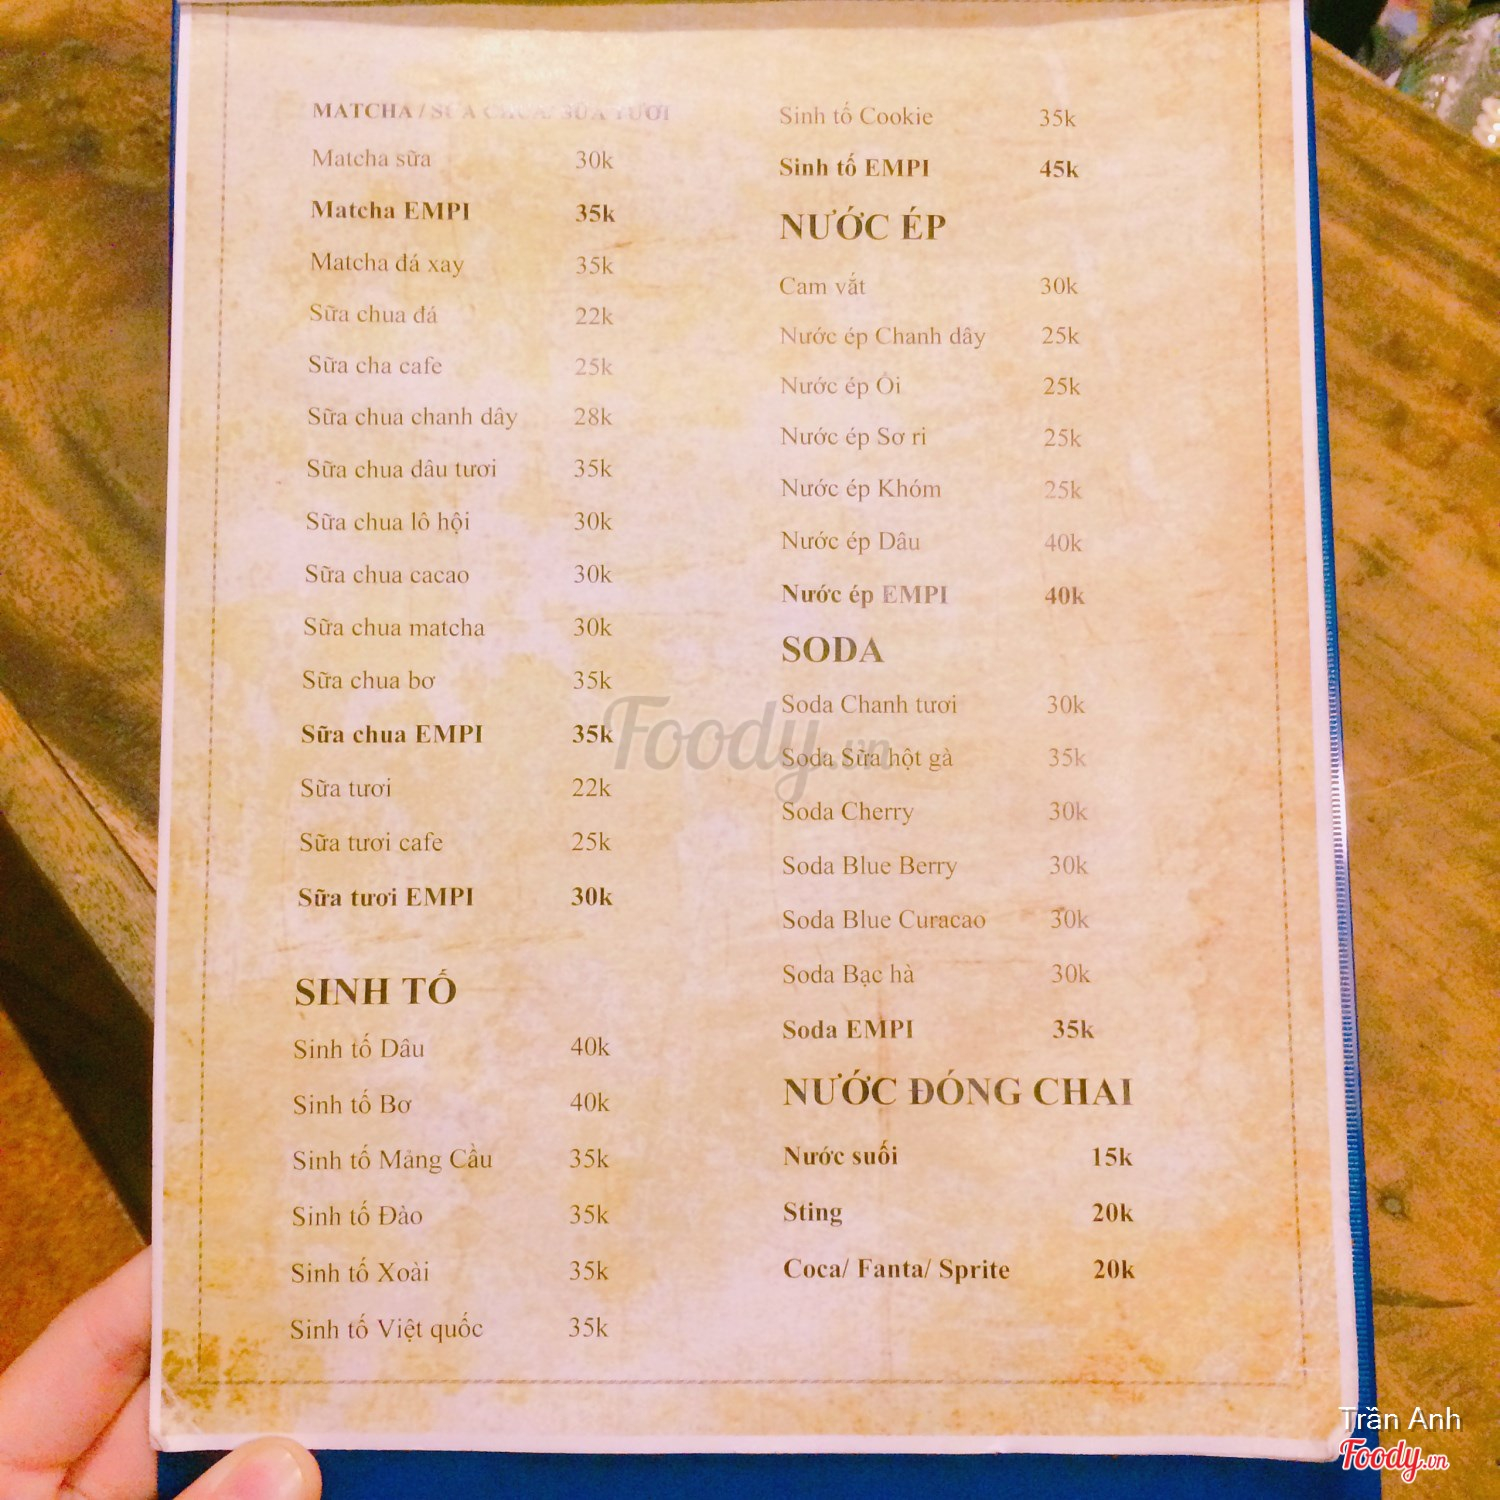 MATCHA / SỮA CHUA/ SỮA TƯƠI
Matcha sữa 30k
Matcha EMPI 35k
Matcha đá xay 35k
Sữa chua đá 22k
Sữa cha cafe 25k
Sữa chua chanh dây 28k
Sữa chua dâu tươi 35k
Sữa chua lô hội 30k
Sữa chua cacao 30k
Sữa chua matcha 30k
Sữa chua bơ 35k
Sữa chua EMPI 35k
Sữa tươi 22k
Sữa tươi cafe 25k
Sữa tươi EMPI 30k
SINH TỐ
Sinh tố Dâu 40k
Sinh tố Bơ 40k
Sinh tố Mảng Cầu 35k
Sinh tố Đào 35k
Sinh tố Xoài 35k
Sinh tố Việt quốc 35k
Sinh tố Cookie 35k
Sinh tố EMPI 45k
NƯỚC ÉP
Cam vắt 30k
Nước ép Chanh dây 25k
Nước ép Ổi 25k
Nước ép Sơ ri 25k
Nước ép Khóm 25k
Nước ép Dâu 40k
Nước ép EMPI 40k
SODA
Soda Chanh tươi 30k
Soda Sữa hột gà 35k
Soda Cherry 30k
Soda Blue Berry 30k
Soda Blue Curacao 30k
Soda Bạc hà 30k
Soda EMPI 35k
NƯỚC ĐÓNG CHAI
Nước suối 15k
Sting 20k
Coca/ Fanta/ Sprite 20k
Foody.vn
Trần Anh
Foody.vn